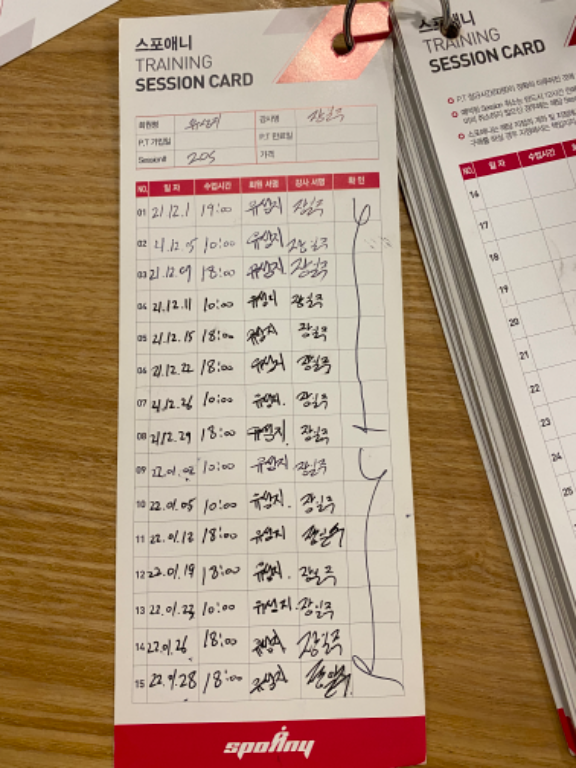 스포애니
TRAINING
SESSION CARD
회원명 유상지 강사명 장일주
P.T 가입일 P.T 만료일
Session수 20S 가격
NO. 일 자 수업시간 회원 서명 강사 서명 확 인
01 21.12.1 19:00 유상지 장일주
02 21.12.05 10:00 유상지 장일주
03 21.12.09 18:00 유상지 장일주
04 21.12.11 10:00 유상지 장일주
05 21.12.15 18:00 유상지 장일주
06 21.12.22 18:00 유상지 장일주
07 21.12.26 10:00 유상지 장일주
08 21.12.29 18:00 유상지 장일주
09 22.01.02 10:00 유상지 장일주
10 22.01.05 10:00 유상지 장일주
11 22.01.12 18:00 유상지 장일주
12 22.01.19 18:00 유상지 장일주
13 22.01.23 10:00 유상지 장일주
14 22.01.26 18:00 유상지 장일주
15 22.01.28 18:00 유상지 장일주
spoany
스포애니
TRAINING
SESSION CARD
NO. 일 자 수업시간 회원
16
17
18
19
20
21
22
23
24
25